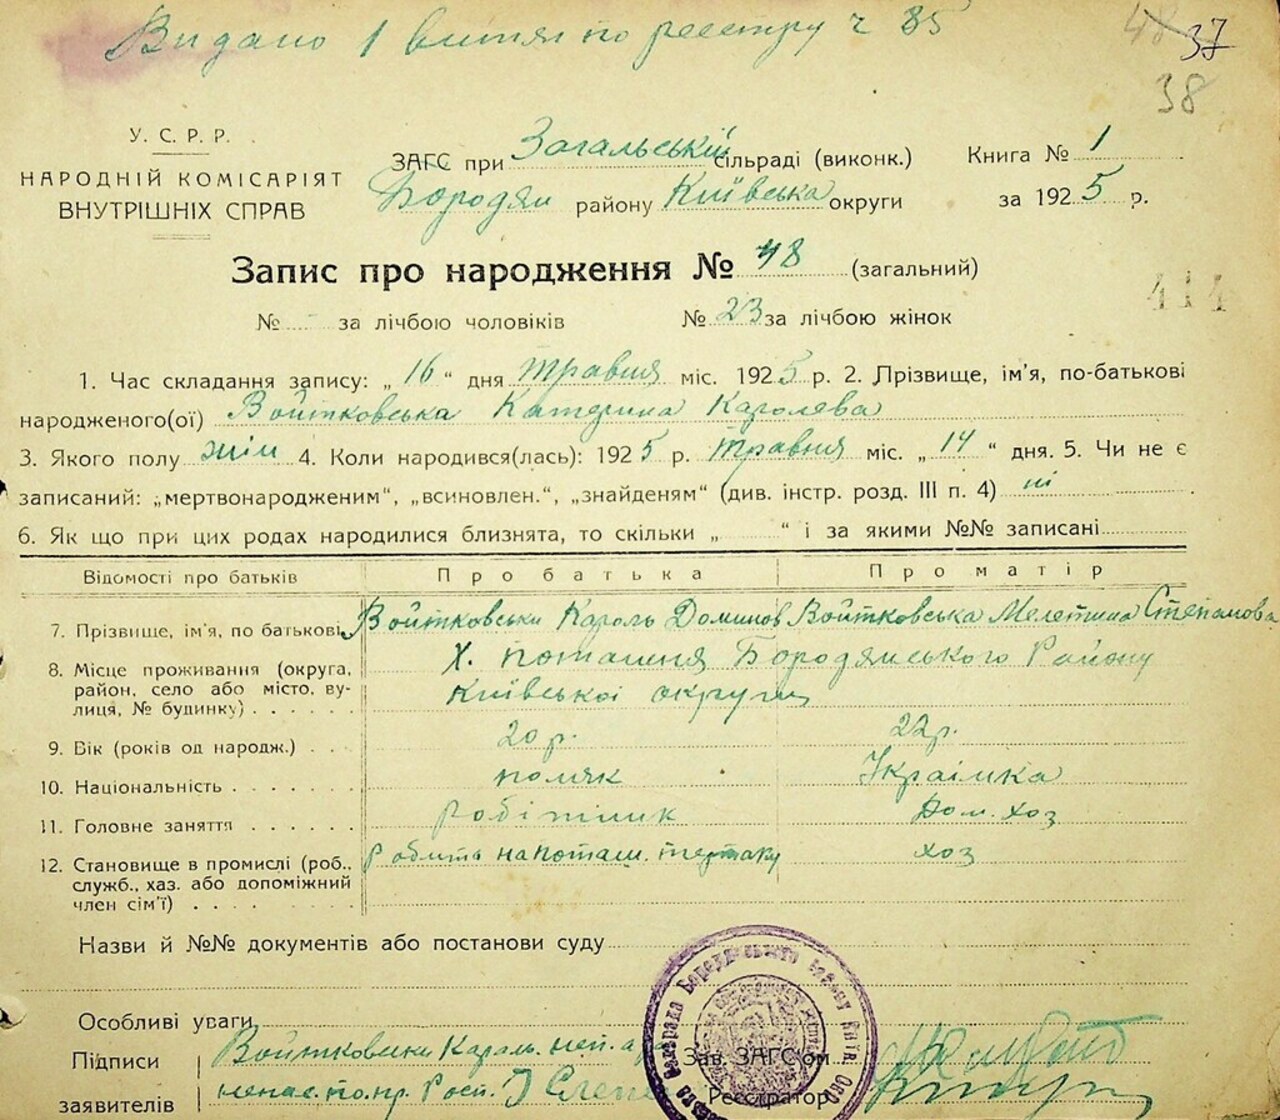 Видано 1 витяг по реєстру ч 85
48 37
38
У. С. Р. Р.
НАРОДНІЙ КОМІСАРІЯТ
ВНУТРІШНІХ СПРАВ
ЗАГС при Загальській сільраді (виконк.) Книга № 1
Бородян району Київська округи за 1925 р.
Запис про народження № 48 (загальний)
414
№ - за лічбою чоловіків № 23 за лічбою жінок
1. Час складання запису: „ 16 “ дня травня міс. 1925 р. 2. Прізвище, ім'я, по-батькові
народженого(ої) Войтковська Катерина Каролева
3. Якого полу жін 4. Коли народився(лась): 1925 р. травня міс. „ 14 “ дня. 5. Чи не є
записаний: „мертвонародженим“, „всиновлен.“, „знайденям“ (див. інстр. розд. III п. 4) ні
6. Як що при цих родах народилися близнята, то скільки „ “ і за якими №№ записані
Відомості про батьків Про батька Про матір
7. Прізвище, ім'я, по батькові Войтковськи Кароль Доминов Войтковська Мелетина Степанова
8. Місце проживання (округа, Х. поташня Бородянського Району
район, село або місто, ву- Київської округи
лиця, № будинку)
9. Вік (років од народж.) 20 р. 22 р.
10. Національність поляк Українка
11. Головне заняття робітник Дом. хоз
12. Становище в промислі (роб., Робить на поташ. тертаку хоз
служб., хаз. або допоміжний
член сім'ї)
Назви й №№ документів або постанови суду
Особливі уваги
Підписи Войтковськи Кароль
заявителів
Зав. ЗАГС'ом
Реєстратор